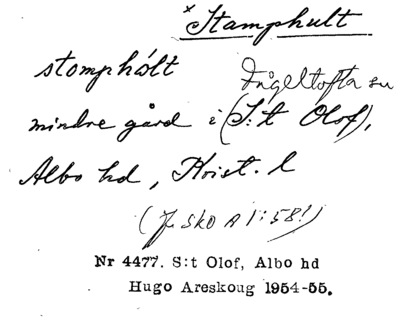 × Stamphult
stomphólt Fågeltofta sn
mindre gård i (S:t Olof),
Albo hd, Krist. l
(Jr SkO A 1:58!)
Nr 4477. S:t Olof, Albo hd
Hugo Areskoug 1954-55.